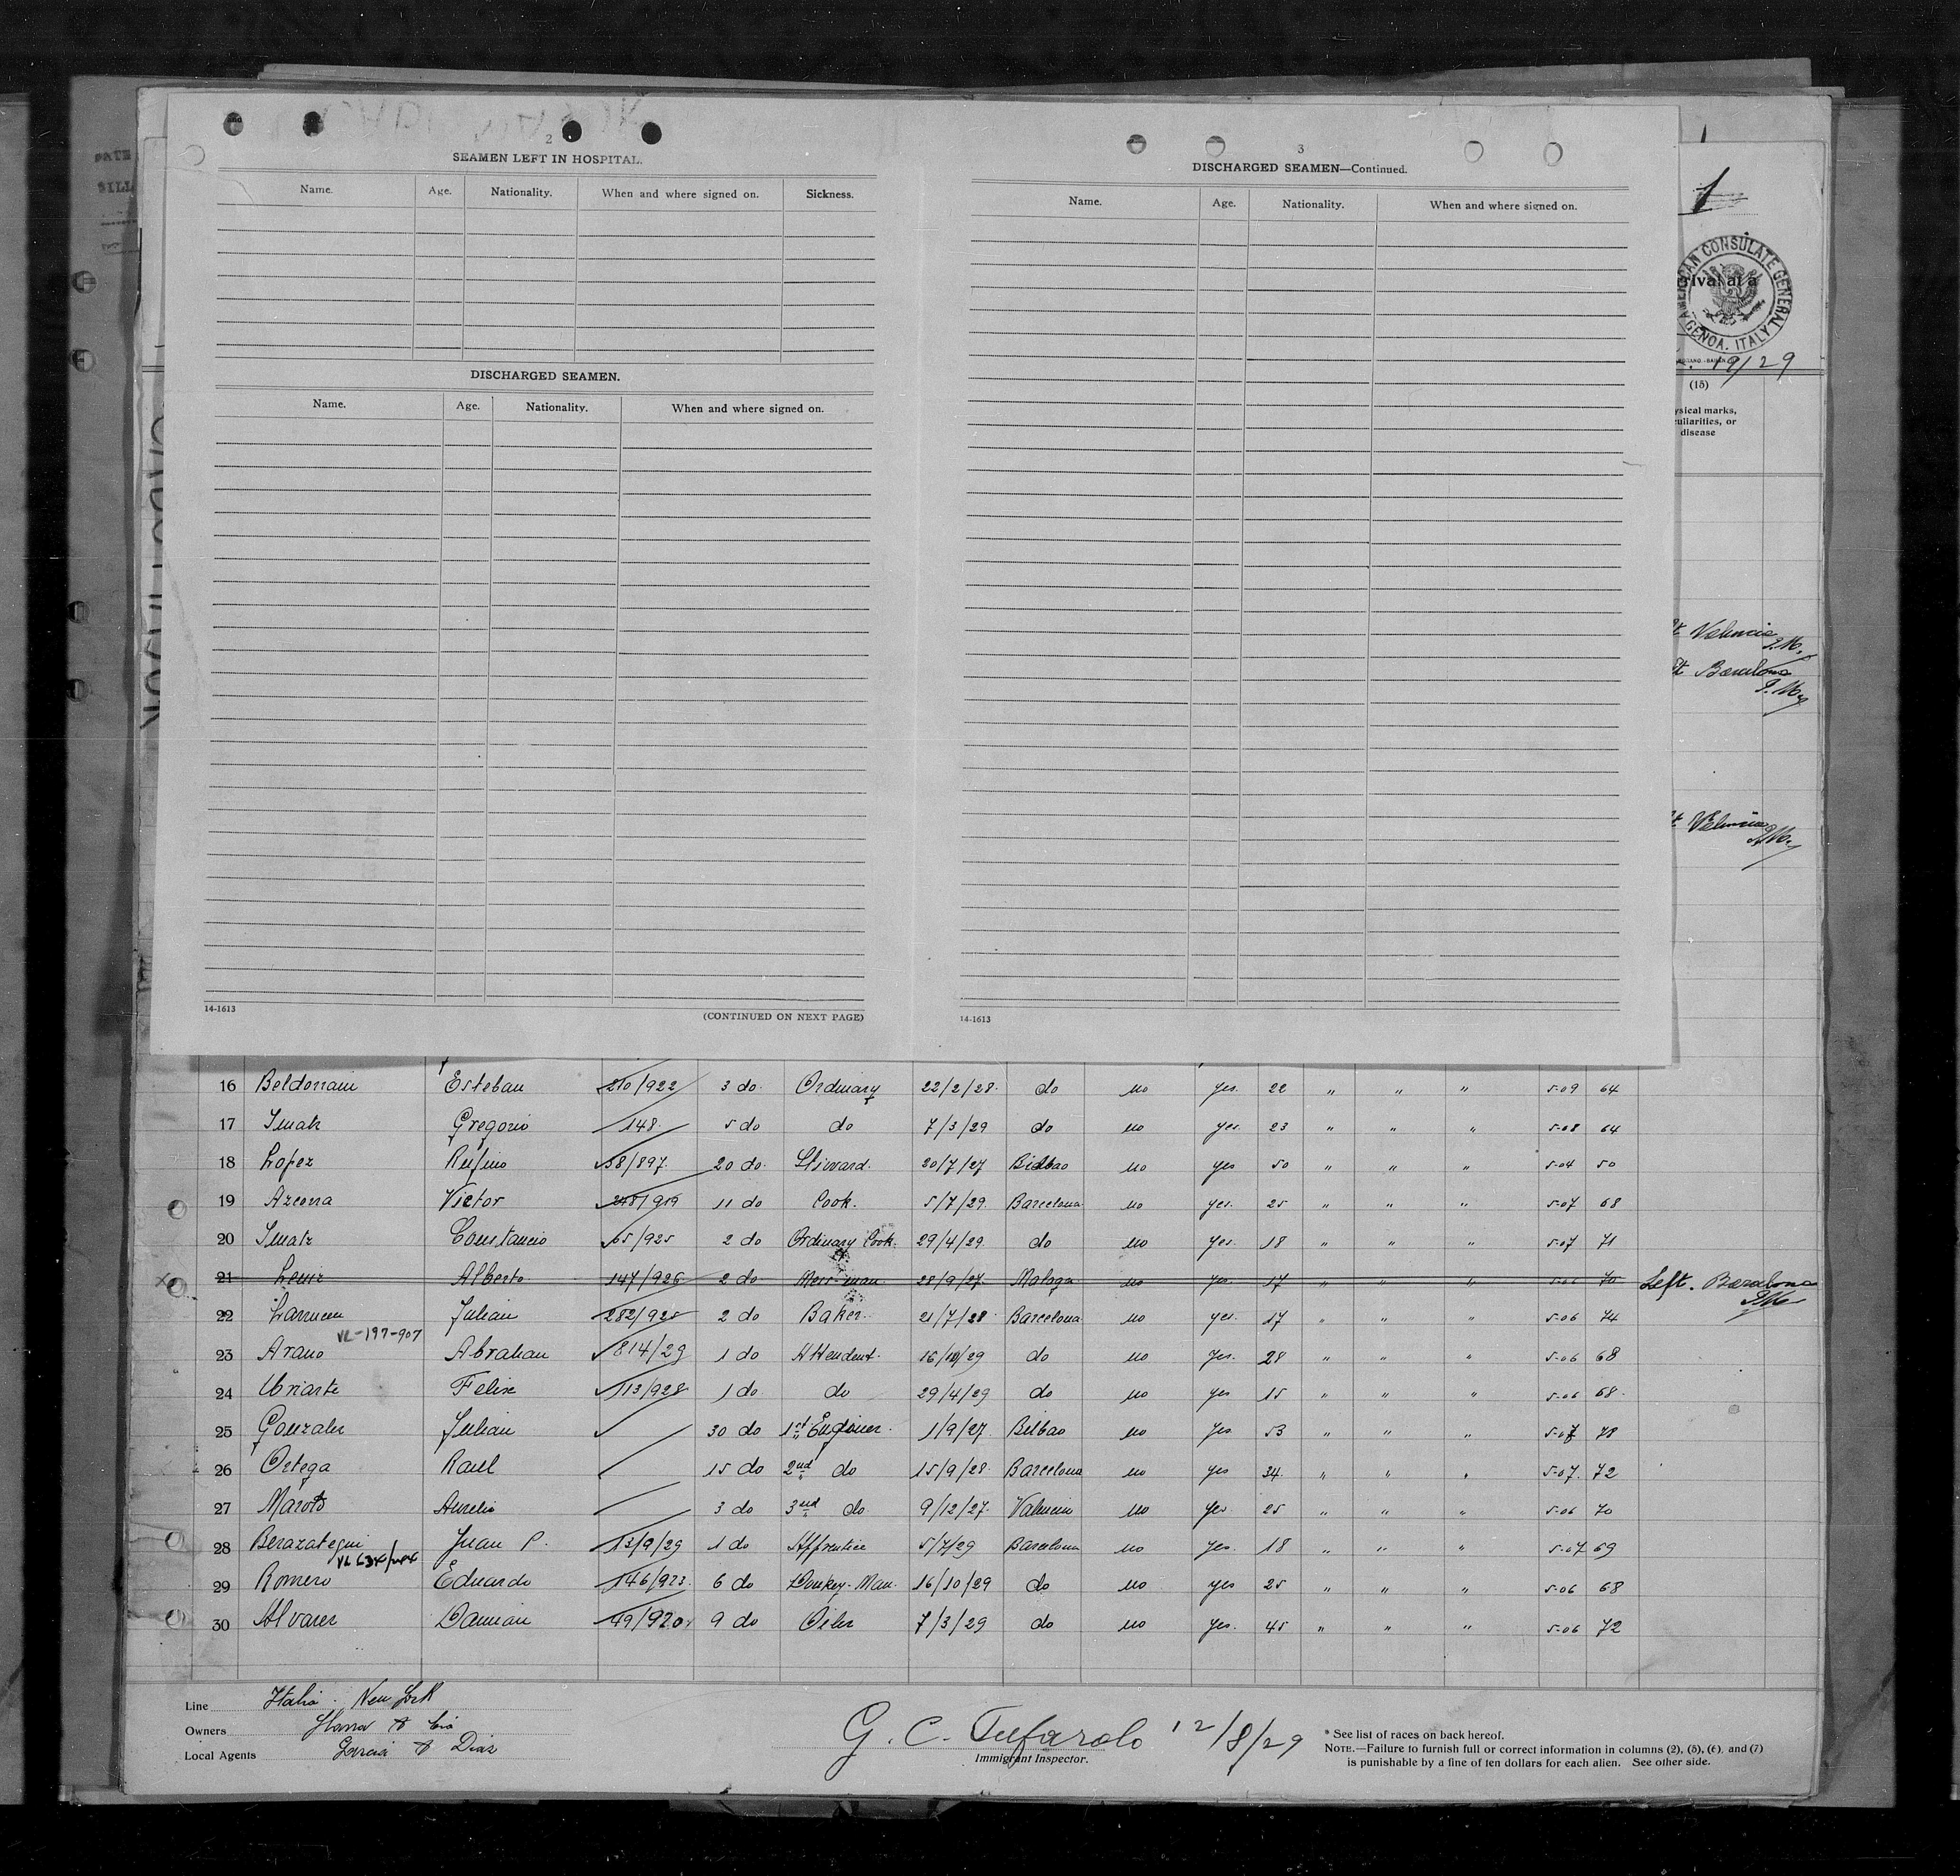 2
SEAMEN LEFT IN HOSPITAL.
Name. Age. Nationality. When and where signed on. Sickness.
DISCHARGED SEAMEN.
Name. Age. Nationality. When and where signed on.
14-1613
(CONTINUED ON NEXT PAGE)
3
DISCHARGED SEAMEN—Continued.
Name. Age. Nationality. When and where signed on.
14-1613
1
AMERICAN CONSULATE GENERAL
GENOA, ITALY
rival at a
19/29
(15)
ysical marks,
uliarities, or
disease
Valencia
Barcelona
Valencia
16 Beldorrain Esteban 210/922 3 do. Ordinary 22/2/28. do no yes. 22 " " " 5-09 64
17 Gregorio 148 5 do do 7/3/29 do no yes. 23 " " " 5-08 64
18 Lopez Rufino 58/897 20 do. Steward. 20/7/27 Bilbao no yes 50 " " " 5-04 50
19 Azcona Victor 248/919 11 do Cook. 5/7/29. Barcelona no yes. 25 " " " 5-07 68
20 Constancio 65/925 2 do Ordinary Cook. 29/4/29. do no yes. 18 " " " 5-07 71
21 Alberto 147/926 2 do Mess-man 28/9/27. Malaga no yes. 17 " " " 5-06 70 Left. Barcelona
22 Julian 282/925 2 do Baker. 21/7/28 Barcelona no yes. 17 " " " 5-06 74
VL-197-907
23 Arano Abrahan 814/29 1 do Attendent. 16/10/29 do no yes. 28 " " " 5-06 68
24 Uriarte Felix 113/928 1 do do 29/4/29 do no yes 15 " " " 5-06 68.
25 Gonzalez Julian 30 do 1st Engineer. 1/9/27. Bilbao no yes. 53 " " " 5-07 78
26 Ortega Raul 15 do 2nd do 15/9/28. Barcelona no yes 34. " " " 5-07. 72
27 Maroto Aurelio 3 do 3rd do 9/12/27. Valencia no yes 25 " " " 5-06 70
28 Berazategui Juan P. 13/9/29 1 do Apprentice 5/7/29 Barcelona no yes. 18 " " " 5-07 69
29 Romero Eduardo 146/923. 6 do Donkey-Man. 16/10/29 do no yes 25 " " " 5-06 68
30 Alvarez Damian 49/920. 9 do Oiler 7/3/29 do no yes. 45 " " " 5-06 72
Line Italia. New York
Owners & Cia
Local Agents Garcia & Diaz
G. C. Tufarolo 12/8/29
Immigrant Inspector.
* See list of races on back hereof.
NOTE.—Failure to furnish full or correct information in columns (2), (5), (6), and (7)
is punishable by a fine of ten dollars for each alien. See other side.